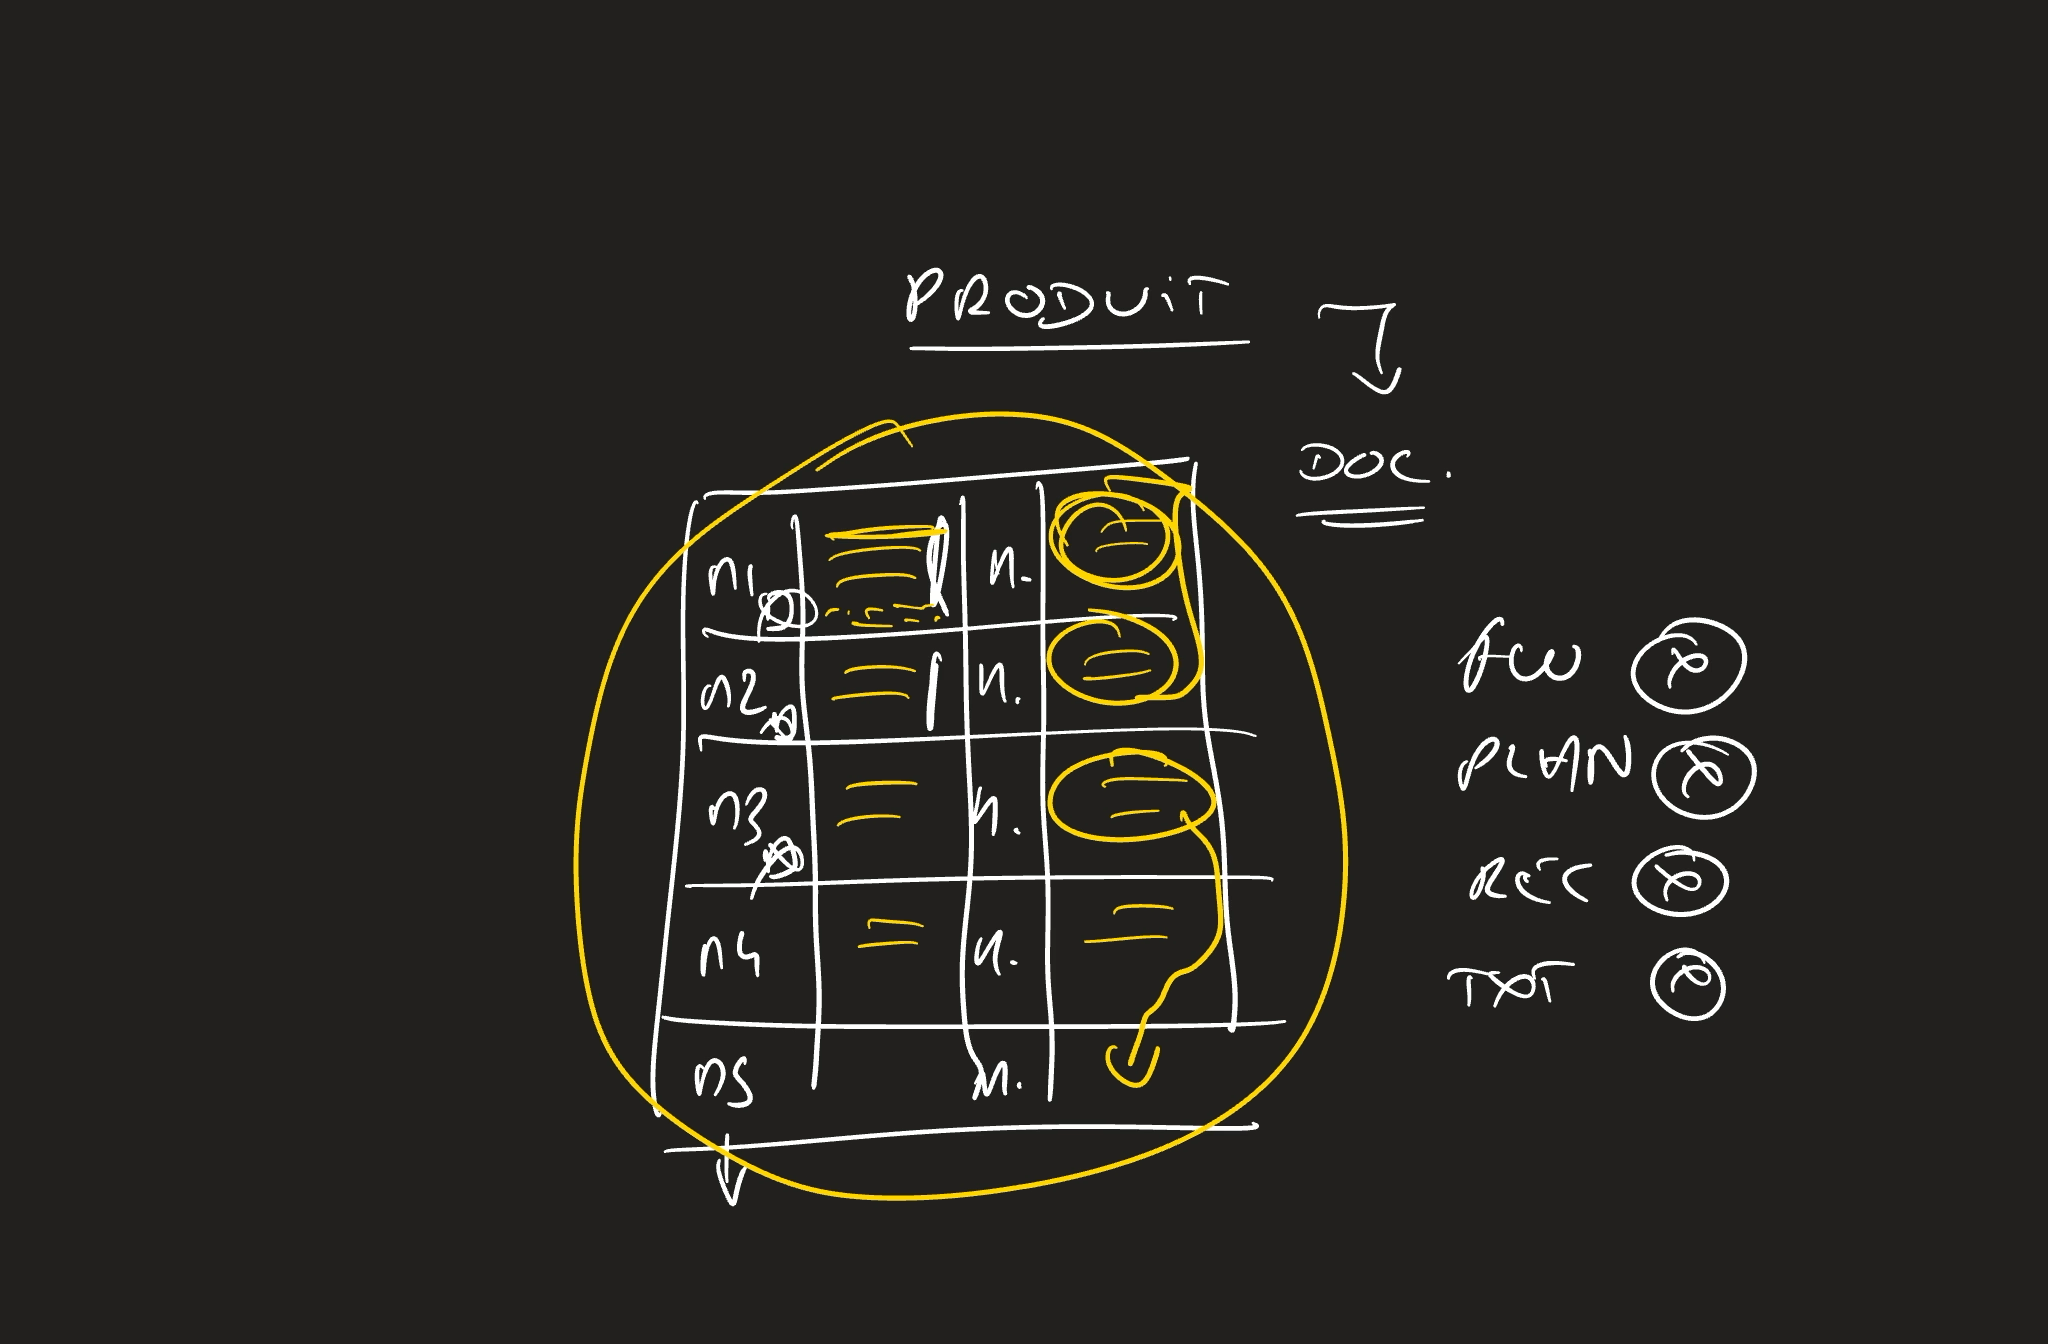 PRODUIT
DOC.
n1 n.
n2 n.
n3 n.
n4 n.
n5 n.
PLAN
REC
TXT